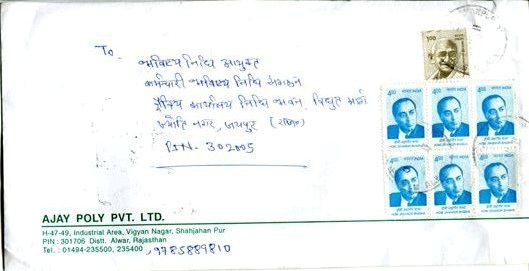 To
भविष्य निधि आयुक्त
कर्मचारी भविष्य निधि संगठन
क्षेत्रिय कार्यालय निधि भवन, विद्युत मार्ग
ज्योति नगर, जयपुर (राज०)
PIN- 302005
100
400 भारत INDIA
400 भारत INDIA
400 भारत INDIA
होमी जहांगीर भाभा
HOMI JEHANGIR BHABHA
400 भारत INDIA
400 भारत INDIA
400 भारत INDIA
होमी जहांगीर भाभा
HOMI JEHANGIR BHABHA
AJAY POLY PVT. LTD.
H-47-49, Industrial Area, Vigyan Nagar, Shahjahan Pur
PIN : 301706 Distt. Alwar, Rajasthan
Tel. : 01494-235500, 235400, 9785889810